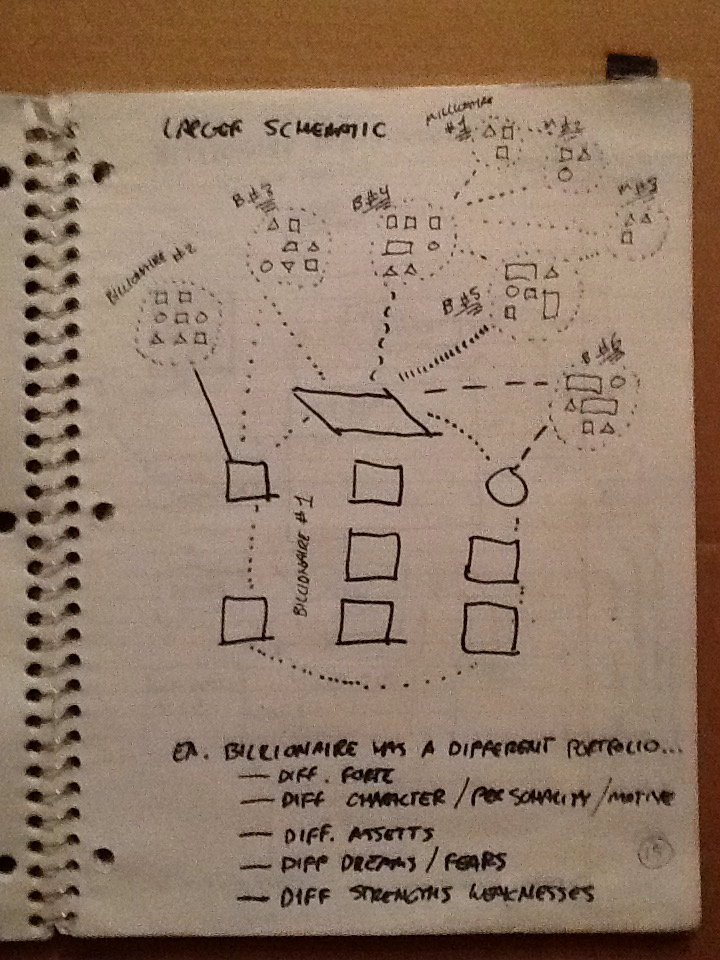 LARGER SCHEMATIC
MILLIONAIRE
#1
M#2
M#3
B#3
B#4
BILLIONAIRE #2
B#5
B#6
BILLIONAIRE #1
EA. BILLIONAIRE HAS A DIFFERENT PORTFOLIO...
— DIFF. FORTE
— DIFF CHARACTER / PERSONALITY / MOTIVE
— DIFF. ASSETTS
— DIFF DREAMS / FEARS
— DIFF STRENGTHS WEAKNESSES
15